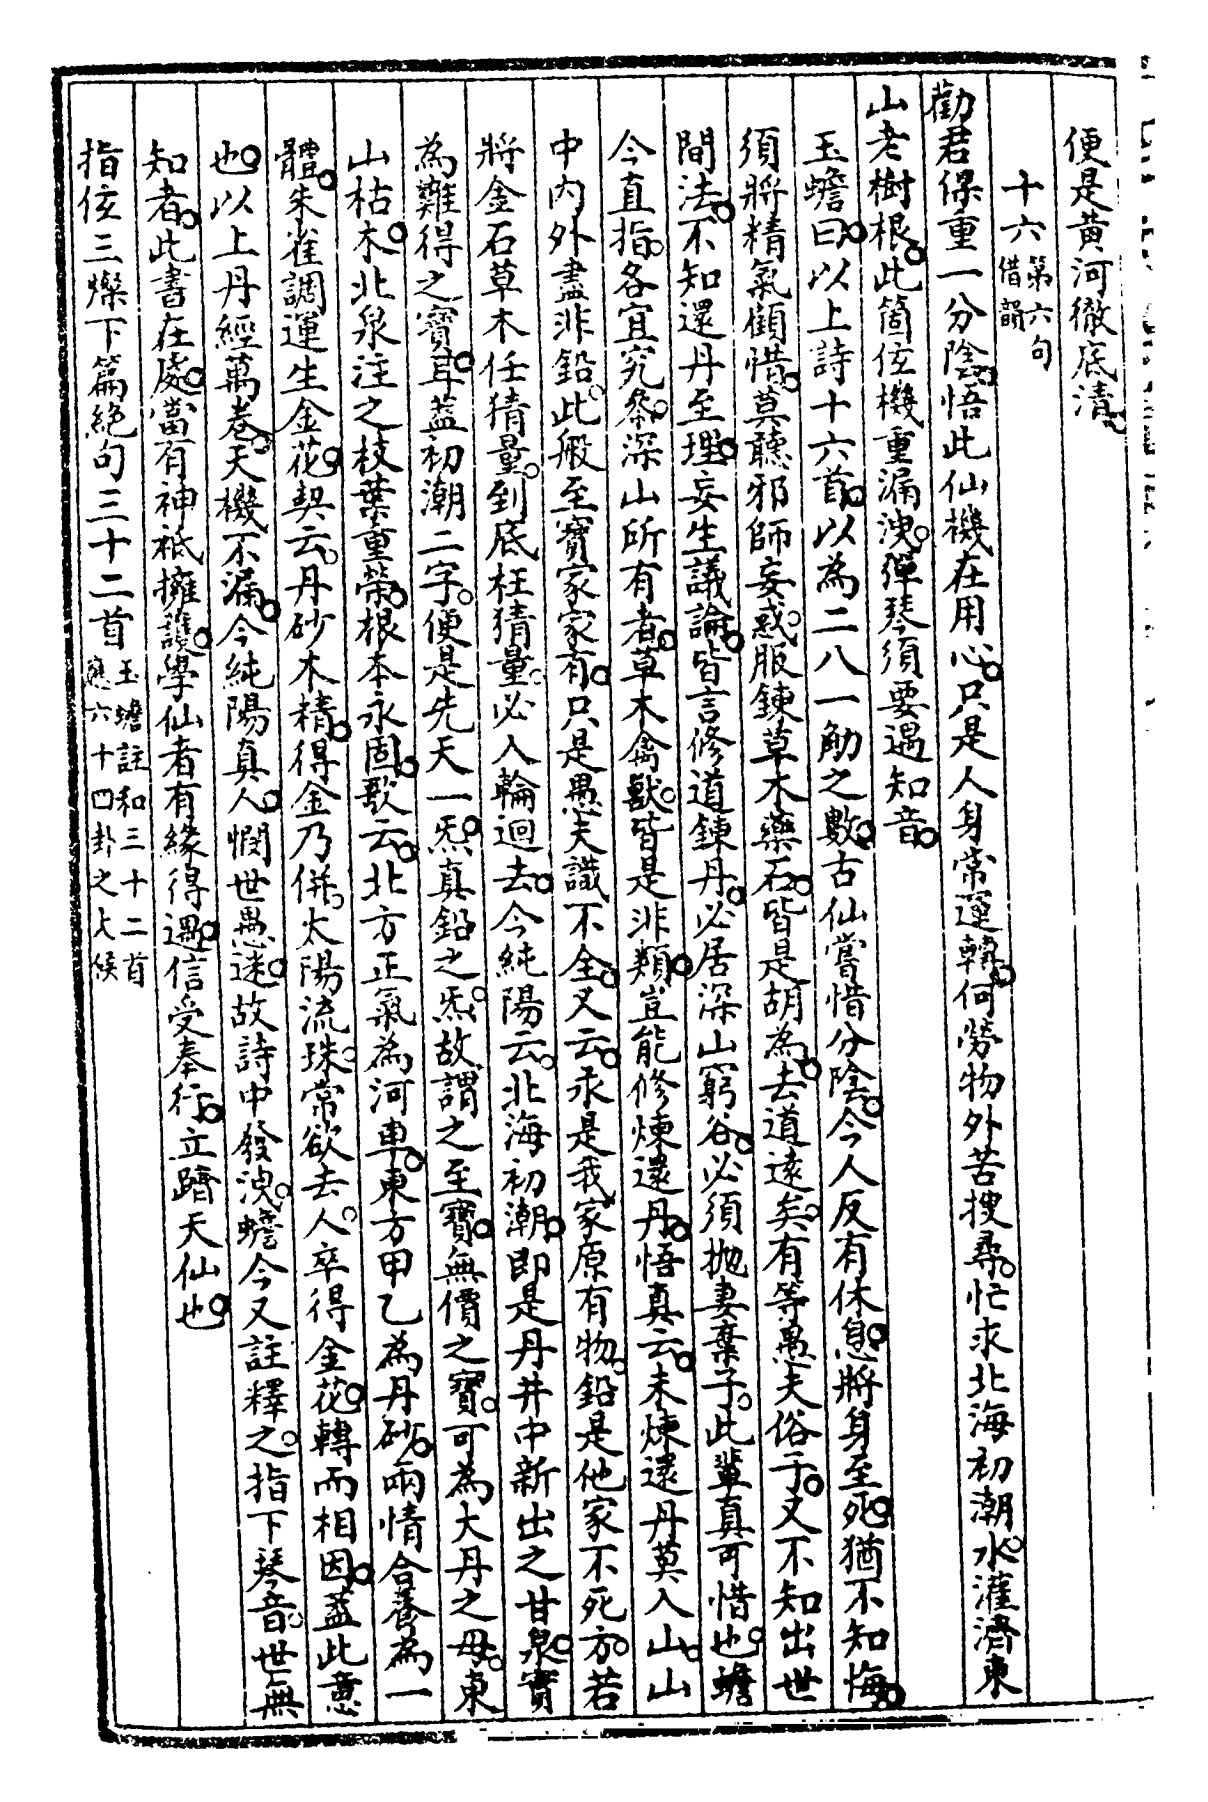 便是黃河徹底清
十六第六句借韻
勸君保重一分陰悟此仙機在用心只是人身常運轉何勞物外苦搜尋忙求北海初潮水灌濟東
山老樹根此箇玄機重漏洩彈琴須要遇知音
玉蟾曰以上詩十六首以為二八一觔之數古仙嘗惜分陰今人反有休息將身至死猶不知悔
須將精氣顧惜莫聽邪師妄惑服鍊草木藥石皆是胡為去道遠矣有等愚夫俗子又不知出世
間法不知還丹至理妄生議論皆言修道鍊丹必居深山窮谷必須拋妻棄子此輩真可惜也蟾
今直指各宜究叅深山所有者草木禽獸皆是非類豈能修煉還丹悟真云未煉還丹莫入山山
中內外盡非鉛此般至寶家家有只是愚夫識不全又云汞是我家原有物鉛是他家不死方若
將金石草木任猜量到底枉猜量必入輪迴去今純陽云北海初潮即是丹井中新出之甘泉實
為難得之寶耳葢初潮二字便是先天一炁真鉛之炁故謂之至寶無價之寶可為大丹之母東
山枯木北泉注之枝葉重榮根本永固歌云北方正氣為河車東方甲乙為丹砂兩情合養為一
體朱雀調運生金花契云丹砂木精得金乃併太陽流珠常欲去人卒得金花轉而相因葢此意
也以上丹經萬卷天機不漏今純陽真人憫世愚迷故詩中發洩蟾今又註釋之指下琴音世無
知者此書在處當有神祇擁護學仙者有緣得遇信受奉行立躋天仙也
指玄三燦下篇絕句三十二首玉蟾註和三十二首應六十四卦之火候